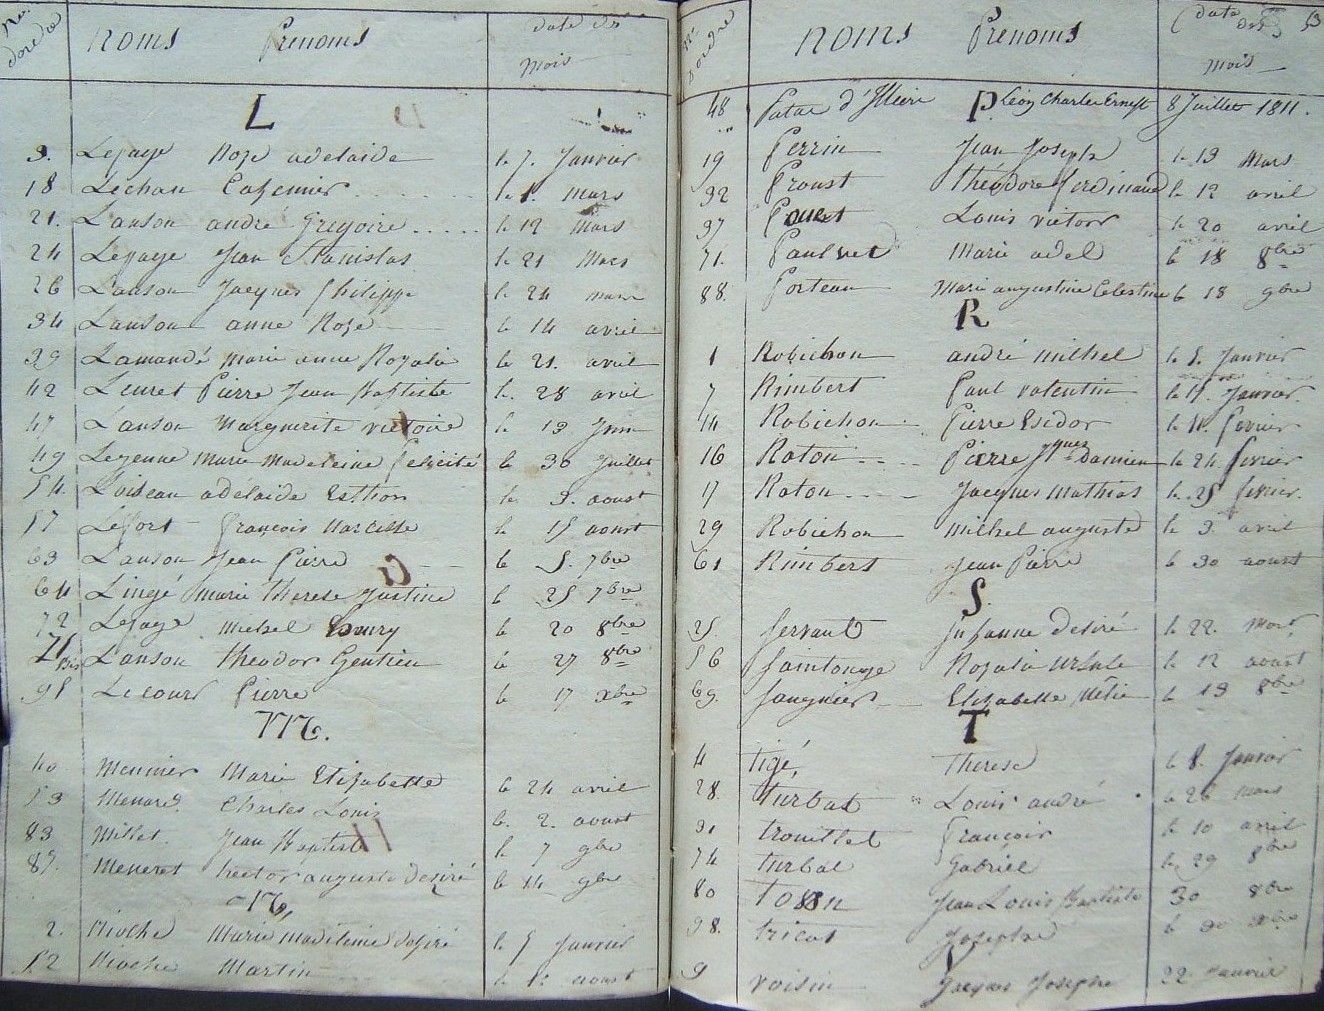 No. d'ordre Noms Prenoms date des mois
L
3. Lepage Rose adelaide le 7. Janvier
18 Lechau Casemier le 1. Mars
21. Lanson andré Gregoire le 12 Mars
24 Lepage Jean Stanislas le 21 Mars
26 Lanson Jacques Philippe le 24 mars
34 Lanson anne Rose le 14 avril
39 Lamandé marie anne Rosalie le 21. avril
42 Leuret Pierre Jean Baptiste le 28 avril
47 Lanson Marguerite victoire le 13 Juin
49 Lejeune Marie Madeleine Felicité le 30 Juillet
54 Loiseau adélaide Esther le 3. aoust
57 Lefort François Marcelle le 15 aoust
63 Lanson Jean Pierre le 5. 7bre
64 Lingé marie Therese Justine le 25 7bre
72 Lepage Michel le 20 8bre
bis Lanson theodor Gentien le 27 8bre
95 Lecour Pierre le 17 xbre
M.
40 Meunier Marie Elisabette le 24 avril
53 Menard Charles Louis le 2. aoust
83 Millet Jean Baptiste le 7 9bre
87. Meneret hector auguste desiré le 14 9bre
N,
2. Nioche Marie madeleine desiré le 5 Janvier
52 Nioche Martin le 1. aoust
No. d'ordre Noms Prenoms date des mois 53
P
48 Patas d'Illiers Léon Charles Ernest 8 Juillet 1811.
19 Perrin Jean Joseph le 13 Mars
32 Proust theodore ferdinand le 12 avril
37 Louis victor le 20 avril
71. Paulvet Marie adel le 18 8bre
88. Porteau Marie augustine Celestine le 18 9bre
R
1 Robichon andré michel le 5. Janvier
7 Rimbert Paul valentin le Janvier
14 Robichon Pierre Esidor le fevrier
16 Raton Pierre Jques Damien le 24 fevrier
17 Raton Jacques Mathias le 25 fevrier
29 Robichon michel auguste le 3. avril
61 Rimbert Jean Pierre le 30 aoust
S
25. Servault Susanne desiré le 22. Mars
56 Saintonge Rosalie Ursule le 12 aoust
69. Saugnier Elisabette le 13 8bre
T
4 tigé, Therese le 8. Janvier
28. turbat Louis andré le 26 mars
31 trouillet François le 10 avril
74 turbat Gabriel le 29 8bre
80 Jean Louis Baptiste 30 8bre
98. tricot Josephe le 30 xbre
9 voisin Jacques Josephe 22 Janvier